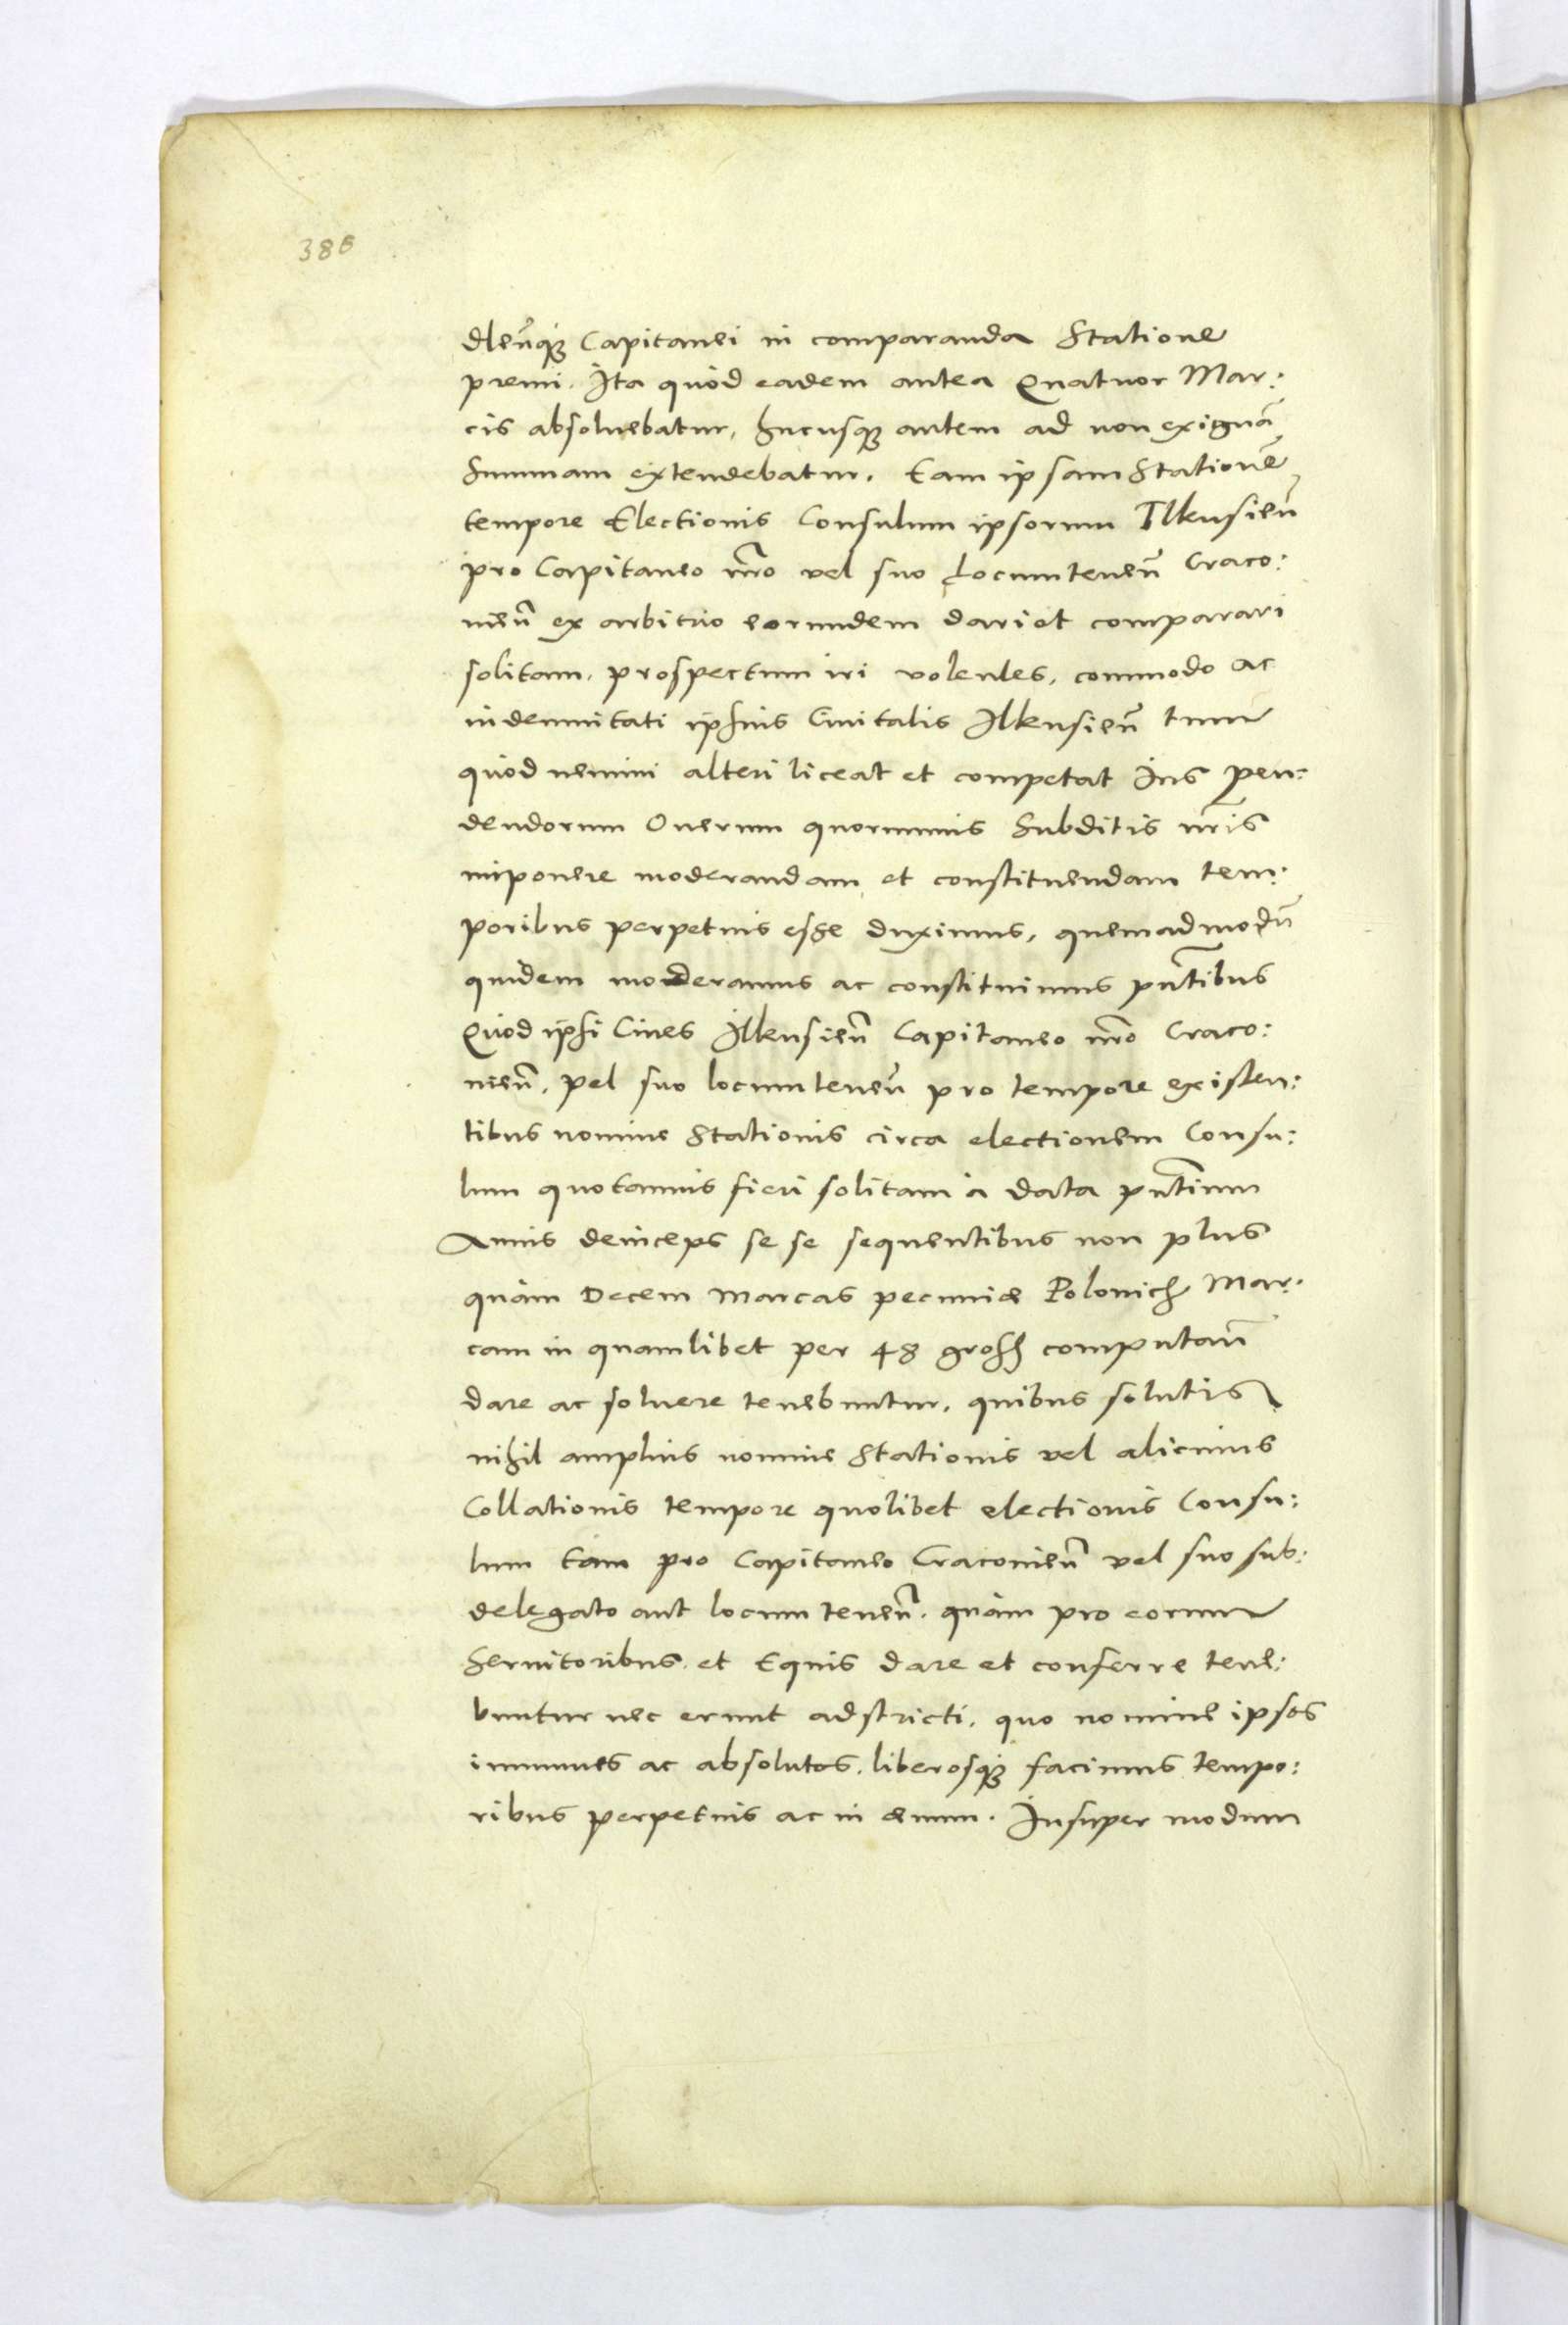 386
dleñq₃ Capitanei in comparanda Statione
premi. Ita quod eadem antea Quatuor Mar:
cis absoluebatur, hucusq₃ autem ad non exiguã
Summam extendebatur. Eam ipsam Stationẽ
tempore Electionis Consulum ipsorum Ilkusieñ
pro Capitaneo nr̃o vel suo Locumteneñ Craco:
uieñ ex arbitrio eorundem dari et comparari
solitam, prospectum iri volentes, commodo ac
indemnitati ipsius Ciuitatis Ilkusieñ tum
quod nemini alteri liceat et competat Ius pen:
dendorum Onerum quorumuis Subditis nr̃is
imponere moderandam et constituendam tem:
poribus perpetuis esse duximus, quemadmodũ
quidem moderamus ac constituimus pñtibus
Quod ipsi Ciues Ilkusieñ Capitaneo nr̃o Craco:
uieñ, vel suo locumteneñ pro tempore existen:
tibus nomine Stationis circa electionem Consu:
lum quotannis fieri solitam à data pñtium
Annis deinceps se se sequentibus non plus
quàm Decem Marcas pecuniæ Polonich Mar:
cam in quamlibet per 48 gross computañ
dare ac soluere tenebuntur, quibus solutis
nihil amplius nomine Stationis vel alicuius
Collationis tempore quolibet electionis Consu:
lum tam pro Capitaneo Cracouieñ vel suo sub:
delegato aut locum teneñ. quàm pro eorum
Seruitoribus et Equis dare et conferre tene:
buntur nec erunt adstricti, quo nomine ipsos
immunes ac absolutos, liberosq₃ facimus tempo:
ribus perpetuis ac in æuum. Insuper modum